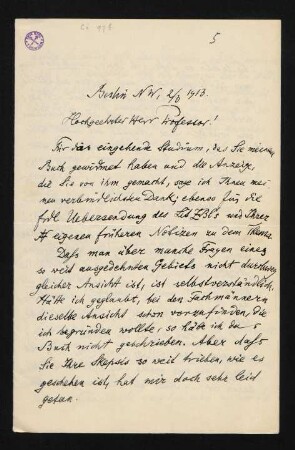 5
Berlin NW, 2/6 1913.
Hochgeehrter Herr Professor!
Für das eingehende Studium, das Sie meinem
Buch gewidmet haben und die Anzeige,
die Sie von ihm gemacht, sage ich Ihnen mei-
nen verbindlichsten Dank; ebenso für die
frdl. Uebersendung des und Ihrer
eigenen früheren Notizen zu dem Thema.
Dass man über manche Fragen eines
so weit ausgedehnten Gebiets nicht durchweg
gleicher Ansicht ist, ist selbstverständlich.
Hätte ich geglaubt, bei den Fachmännern
dieselbe Ansicht schon vorzufinden, die
ich begründen wollte, so hätte ich das
Buch nicht geschrieben. Aber dass
Sie Ihre Skepsis so weit trieben, wie es
geschehen ist, hat mir doch sehr leid
getan.